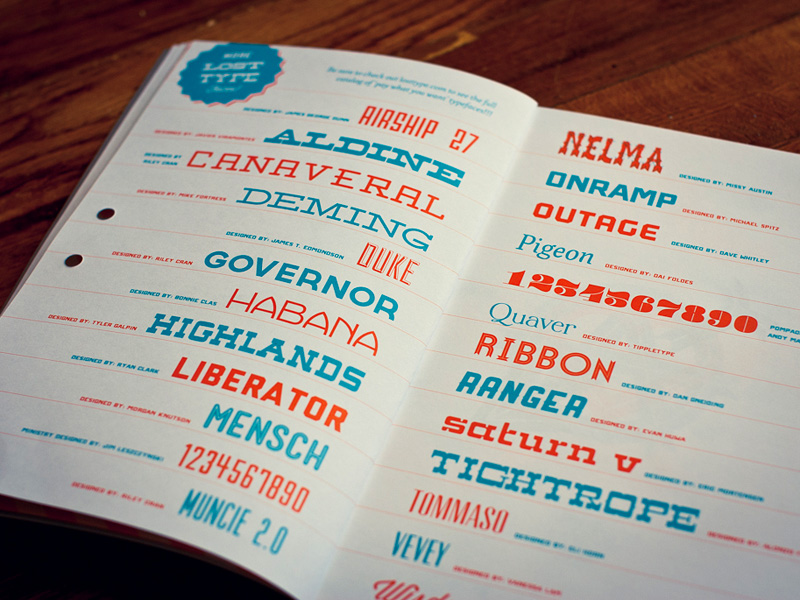 MORE
LOST
TYPE
Be sure to check out losttype.com to see the full
catalog of 'pay what you want' typefaces!!!
DESIGNED BY: JAMES GEORGE DUNN AIRSHIP 27
DESIGNED BY: JAVIER VIRAMONTES ALDINE
DESIGNED BY:
RILEY CRAN CANAVERAL
DESIGNED BY: MIKE FORTRESS DEMING
DESIGNED BY: JAMES T. EDMONDSON DUKE
DESIGNED BY: RILEY CRAN GOVERNOR
DESIGNED BY: BONNIE CLAS HABANA
DESIGNED BY: TYLER GALPIN HIGHLANDS
DESIGNED BY: RYAN CLARK LIBERATOR
DESIGNED BY: MORGAN KNUTSON MENSCH
MINISTRY DESIGNED BY: JIM LESZCZYNSKI 1234567890
DESIGNED BY: RILEY CRAN MUNCIE 2.0
NELMA DESIGNED BY: MISSY AUSTIN
ONRAMP DESIGNED BY: MICHAEL SPITZ
OUTAGE DESIGNED BY: DAVE WHITLEY
Pigeon DESIGNED BY: DAI FOLDES
1234567890 POMPAD
ANDY MA
Quaver DESIGNED BY: TIPPLETYPE
RIBBON DESIGNED BY: DAN GNEIDING
RANGER DESIGNED BY: EVAN HUWA
saturn v DESIGNED BY: ERIC MORTENSEN
TIGHTROPE DESIGNED BY:
TOMMASO DESIGNED BY:
VEVEY DESIGNED BY: VANESSA LAM